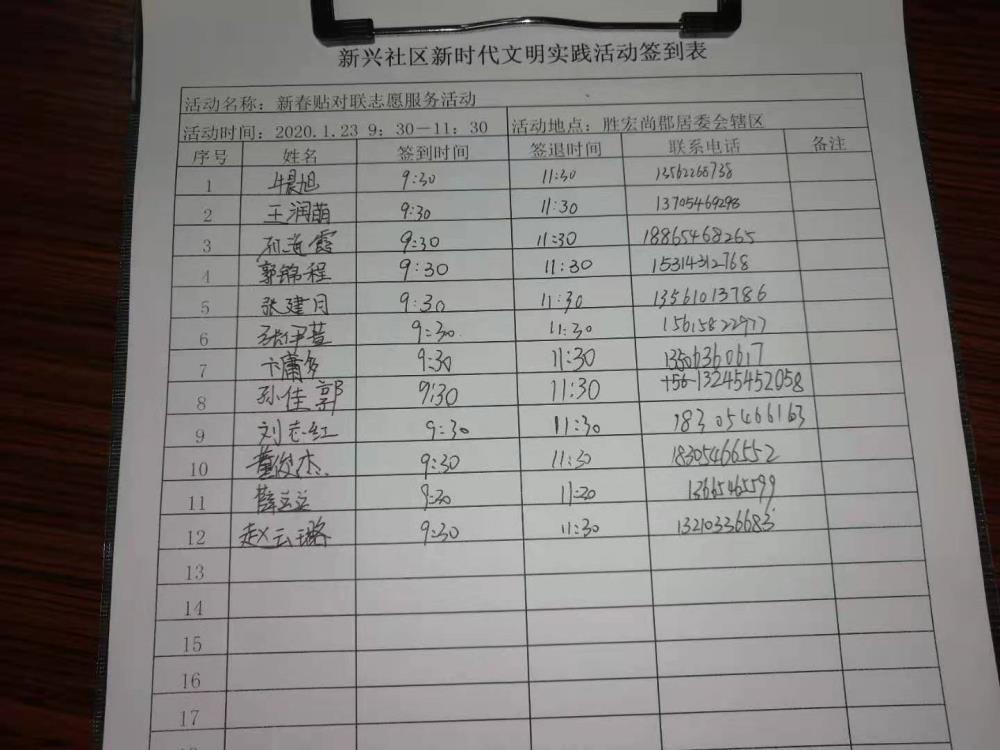 新兴社区新时代文明实践活动签到表
活动名称：新春贴对联志愿服务活动
活动时间：2020.1.23 9：30－11：30 活动地点：胜宏尚郡居委会辖区
序号 姓名 签到时间 签退时间 联系电话 备注
1 9:30 11:30 13562266738
2 王润萌 9:30 11:30 13705469293
3 9:30 11:30 18865468265
4 郭锦程 9:30 11:30 15314312768
5 张建月 9:30 11:30 13561013786
6 张伊萱 9:30 11:30 15615822977
7 9:30 11:30 13506360617
8 孙佳郭 9:30 11:30 13245452058
9 刘志红 9:30 11:30 18305466163
10 董俊杰 9:30 11:30 18305466552
11 薛立立 9:30 11:30 1365465599
12 赵云璐 9:30 11:30 13210336683
13
14
15
16
17